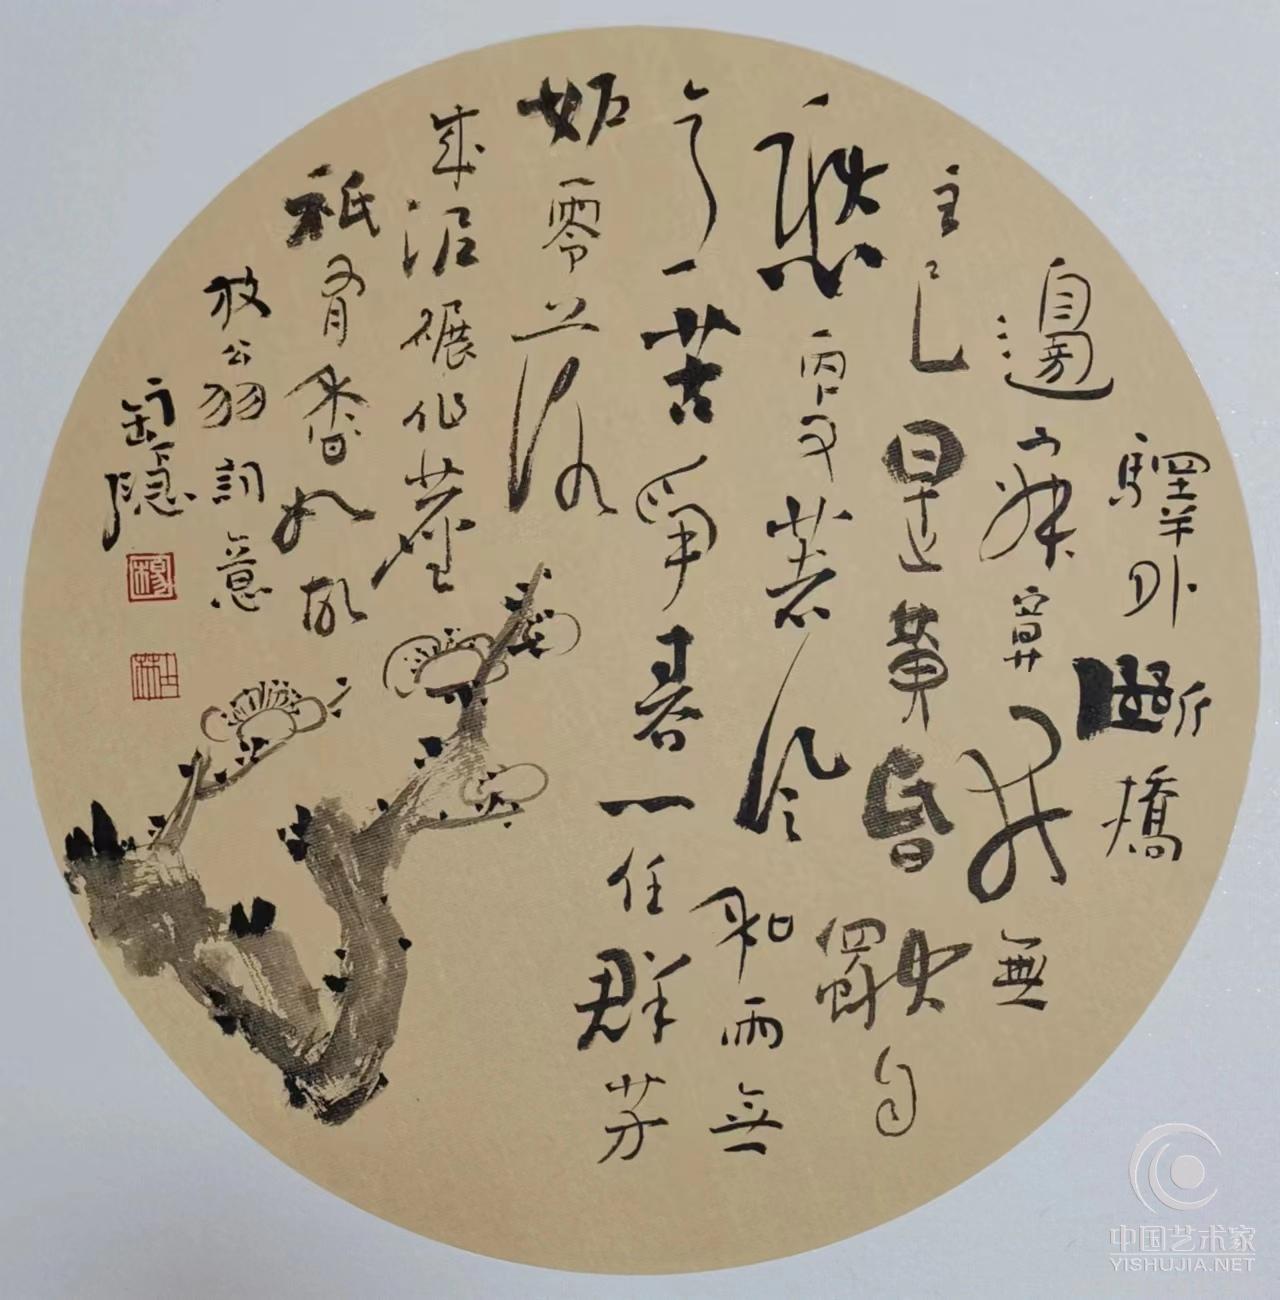 驛外斷橋
邊寂寞開無
主已是黃昏獨自
愁更著風和雨無
意苦爭春一任群芳
妬零落
成泥碾作塵
祇有香如故
放翁詞意
隱
中国艺术家
YISHUJIA.NET